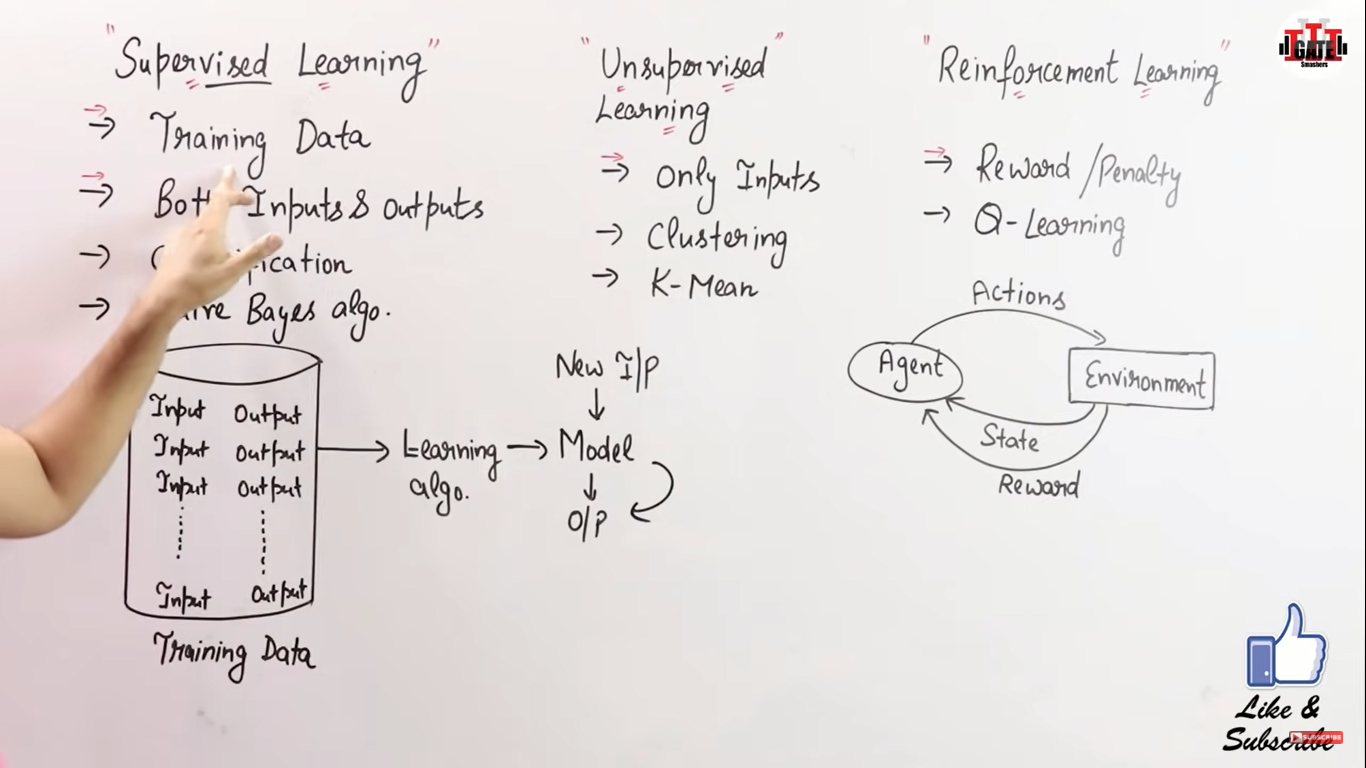 "Supervised Learning"
→ Training Data
→ Both Inputs & Outputs
→
→ Bayes algo.
Input Output
Input Output
Input Output
Input Output
Training Data
Learning
algo.
New I/P
Model
O/P
"Unsupervised"
Learning
→ Only Inputs
→ Clustering
→ K-Mean
"Reinforcement Learning"
→ Reward/Penalty
→ Q-Learning
Actions
Agent
Environment
State
Reward
GATE
Smashers
Like &
Subscribe
SUBSCRIBE